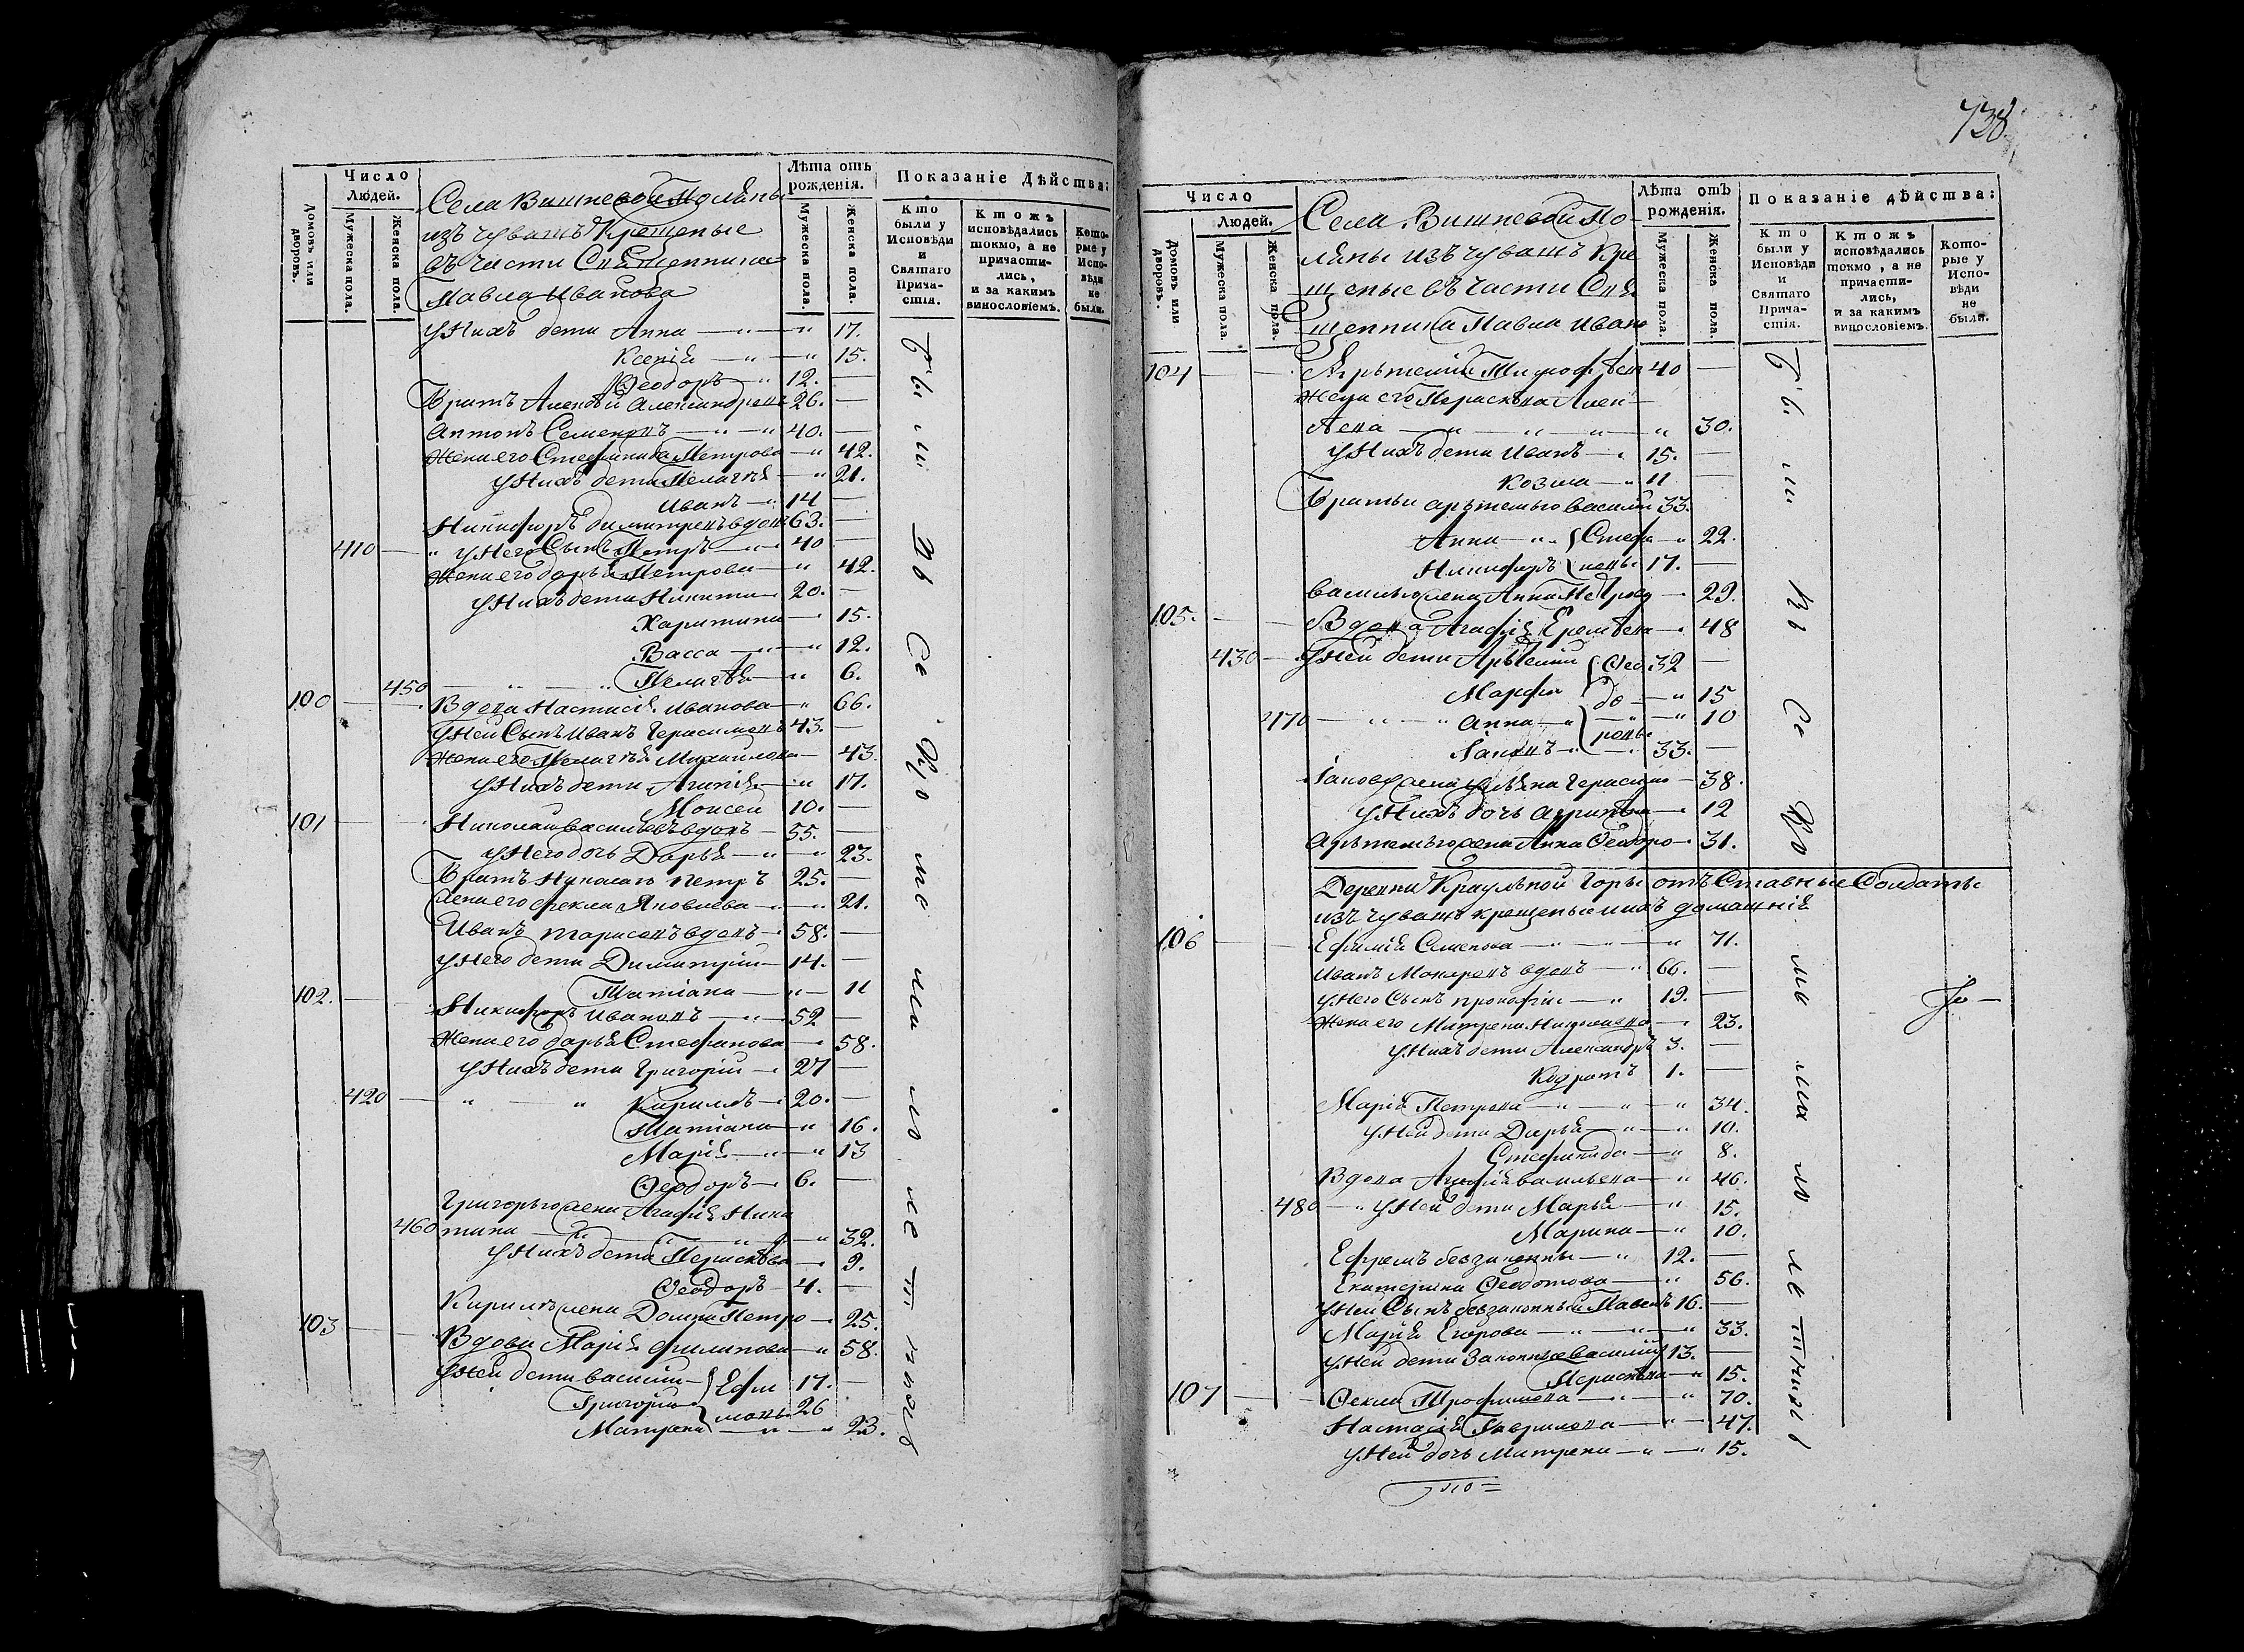 Число
Людей.
Домовъ или дворовъ.
Мужеска пола.
Женска пола.
Села Вишневой Поляны
изъ чувашъ Крещеные
въ части Священника
Павла Иванова
Лѣта отъ рожденія.
Мужеска пола.
Женска пола.
Показаніе Дѣйства:
Кто были у Исповѣди и Святаго Прича-стія.
Ктожъ исповѣдались токмо, а не причасти-лись, и за какимъ винословіемъ.
Кото-рые у Испо-вѣди не были.
У Нихъ дети Анна 17.
Ксенія 15.
Ѳеодоръ 12.
Братъ Алексѣй Александровъ 26.
Антонъ Семеновъ 40.
Жена его Стефанида Петрова 42.
У Нихъ дети Пелагѣя 21.
Иванъ 14
Никифоръ Димитревъ вдовъ 63.
410 У Него Сынъ Петръ 40
Жена его дарья Петрова 42.
У Нихъ дети Никита 20.
Харитина 15.
Васса 12.
450 Пелагѣя 6.
100 Вдова Настасія Иванова 66.
У Ней Сынъ Иванъ Герасимовъ 43.
Жена его Пелагѣя Михайлова 43.
У Нихъ дети Агапія 17.
Моисей 10.
101 Николай васильевъ вдовъ 55.
У Него дочь Дарья 23.
Братъ Николаевъ петръ 25.
Жена его фекла Яковлева 21.
Иванъ тарасовъ вдовъ 58.
У Него дети Димитрій 14.
Татіана 11
102. Никифоръ Ивановъ 52
Жена его дарья Стефанова 58.
У Нихъ дети Григорій 27
420 Кирилъ 20.
Татіана 16.
Марія 13
Ѳеодоръ 6.
Григорьго жена Агафія Ники
460 тина 32.
У Нихъ дети Параскѣва 9.
Ѳеодоръ 4.
Кирилъ жена Домна Петро 25.
103 Вдова Марія филипова 58.
У Ней дети василій Ефи 17.
Григорій мовы 26
Матрена 23.
738
Число
Людей.
Домовъ или дворовъ.
Мужеска пола.
Женска пола.
Села Вишневой По
ляны изъ чувашъ Кре
щеные въ части Свя
щенника Павла Ивано
Лѣта отъ рожденія.
Мужеска пола.
Женска пола.
Показаніе дѣйства:
Кто были у Исповѣди и Святаго Прича-стія.
Ктожъ исповѣдались токмо, а не причасти-лись, и за какимъ винословіемъ.
Кото-рые у Испо-вѣди не были.
104 Арьтемій Тимофѣевъ 40
Жена его Параскѣва Алек
30.
У Нихъ дети Иванъ 15.
Козма 11
Братьи арьтемьго василій 33.
Анна Стефа 22.
Никифоръ новы 17.
васильго жена Анна Петрова 29.
105. Вдова Агафія Еремѣева 48
430 У Ней дети Арьтемій Ѳео 32
Марфа до 15
470 Анна 10
Іаковъ ровы 33.
Іаковъ жена ульяна Герасимо 38.
У Нихъ дочь агрипѣна 12
арьтемьго жена Анна Ѳеодоро 31.
Деревни Краульной Горы отъ Ставные Солдаты
изъ чувашъ крещеные и ихъ домашнія
106 Ефимія Семенова 71.
Иванъ Макаровъ вдовъ 66.
У Него Сынъ прокофій 19.
Жена его Матрена Николаева 23.
У Нихъ дети Александръ 3.
Кодратъ 1.
Марія Петрова 34.
У Ней дети Дарья 10.
Стефанида 8.
Вдова Агафія васильева 46.
480 У Ней дети Марья 15.
Марина 10.
Ефремъ беззаконны 12.
Екатерина Ѳеодотова 56.
У Ней Сынъ беззаконный Павелъ 16.
Марія Егорова 33.
У Ней дети Законные Василій 13.
Параскѣва 15.
107 Ѳекла Трофимова 70.
Настасія Гаврилова 47.
У Ней дочь Матрена 15.